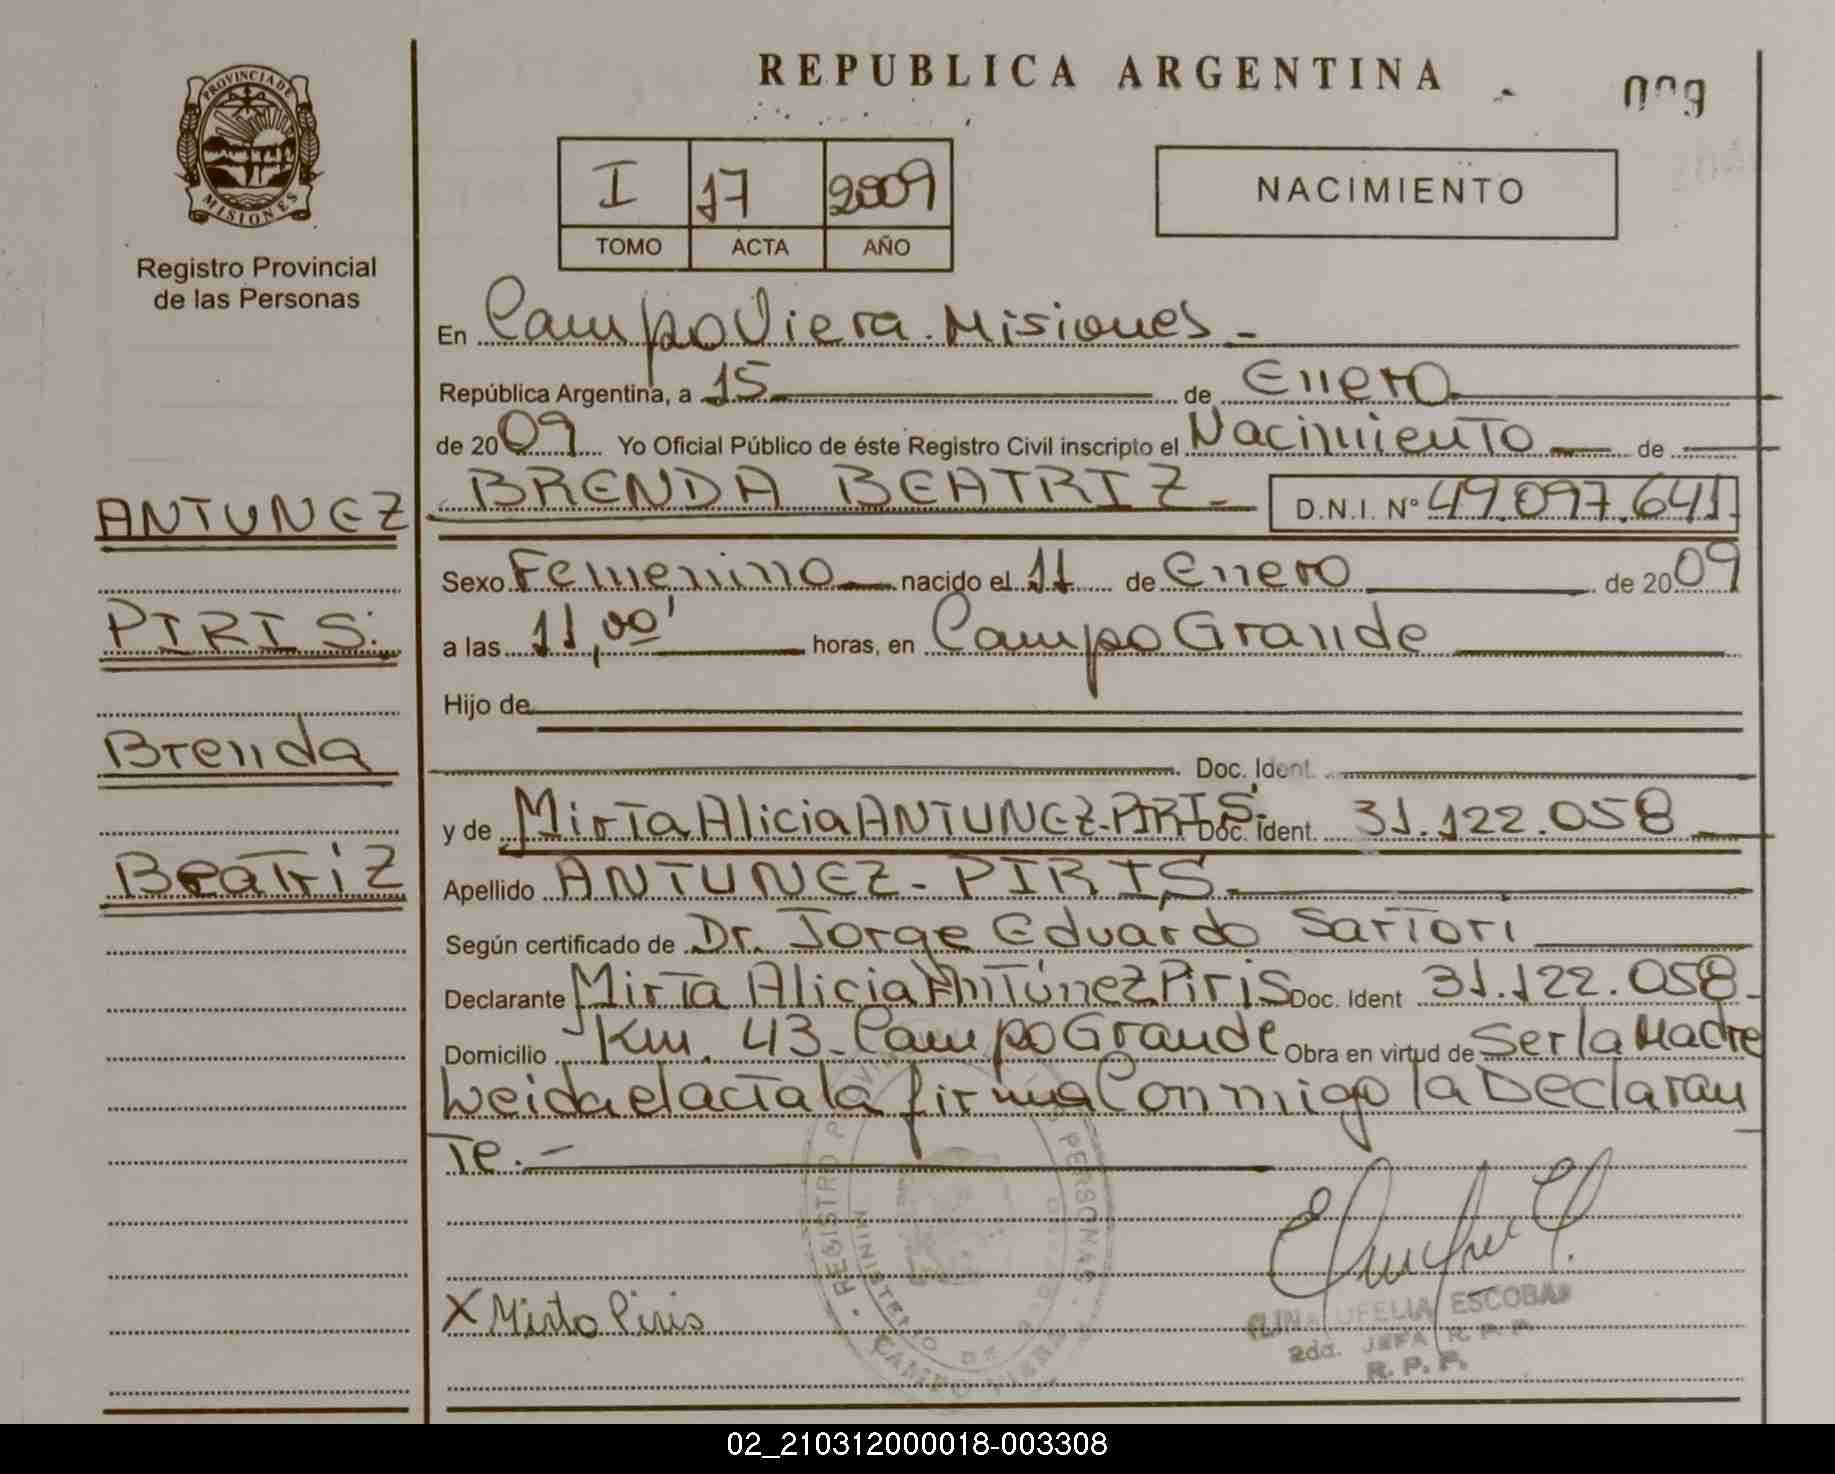 REPUBLICA ARGENTINA
009
PROVINCIA DE
MISIONES
Registro Provincial
de las Personas
I 17 2009
TOMO ACTA AÑO
NACIMIENTO
En Campo Viera. Misiones -
República Argentina, a 15 de Enero
de 2009 Yo Oficial Público de éste Registro Civil inscripto el Nacimiento de
ANTUNEZ BRENDA BEATRIZ - D.N.I. Nº 49.097.641
Sexo Femenino nacido el 11 de Enero de 2009
PIRIS: a las 11,00' horas, en Campo Grande
Hijo de
Brenda
Doc. Ident.
y de Mirta Alicia ANTUNEZ-PIRIS Doc. Ident. 31.122.058
Beatriz Apellido ANTUNEZ - PIRIS -
Según certificado de Dr. Jorge Eduardo Sartori
Declarante Mirta Alicia Antúnez Piris Doc. Ident 31.122.058
Domicilio Km. 43 - Campo Grande Obra en virtud de Ser la Madre
Leida el acta la firma Conmigo la Declaran
te. -
REGISTRO PERSONAS
MINISTERIO DE
X Mirta Piris
OFELIA ESCOBAR
2da. JEFA R. P. P.
R. P. P.
02_210312000018-003308